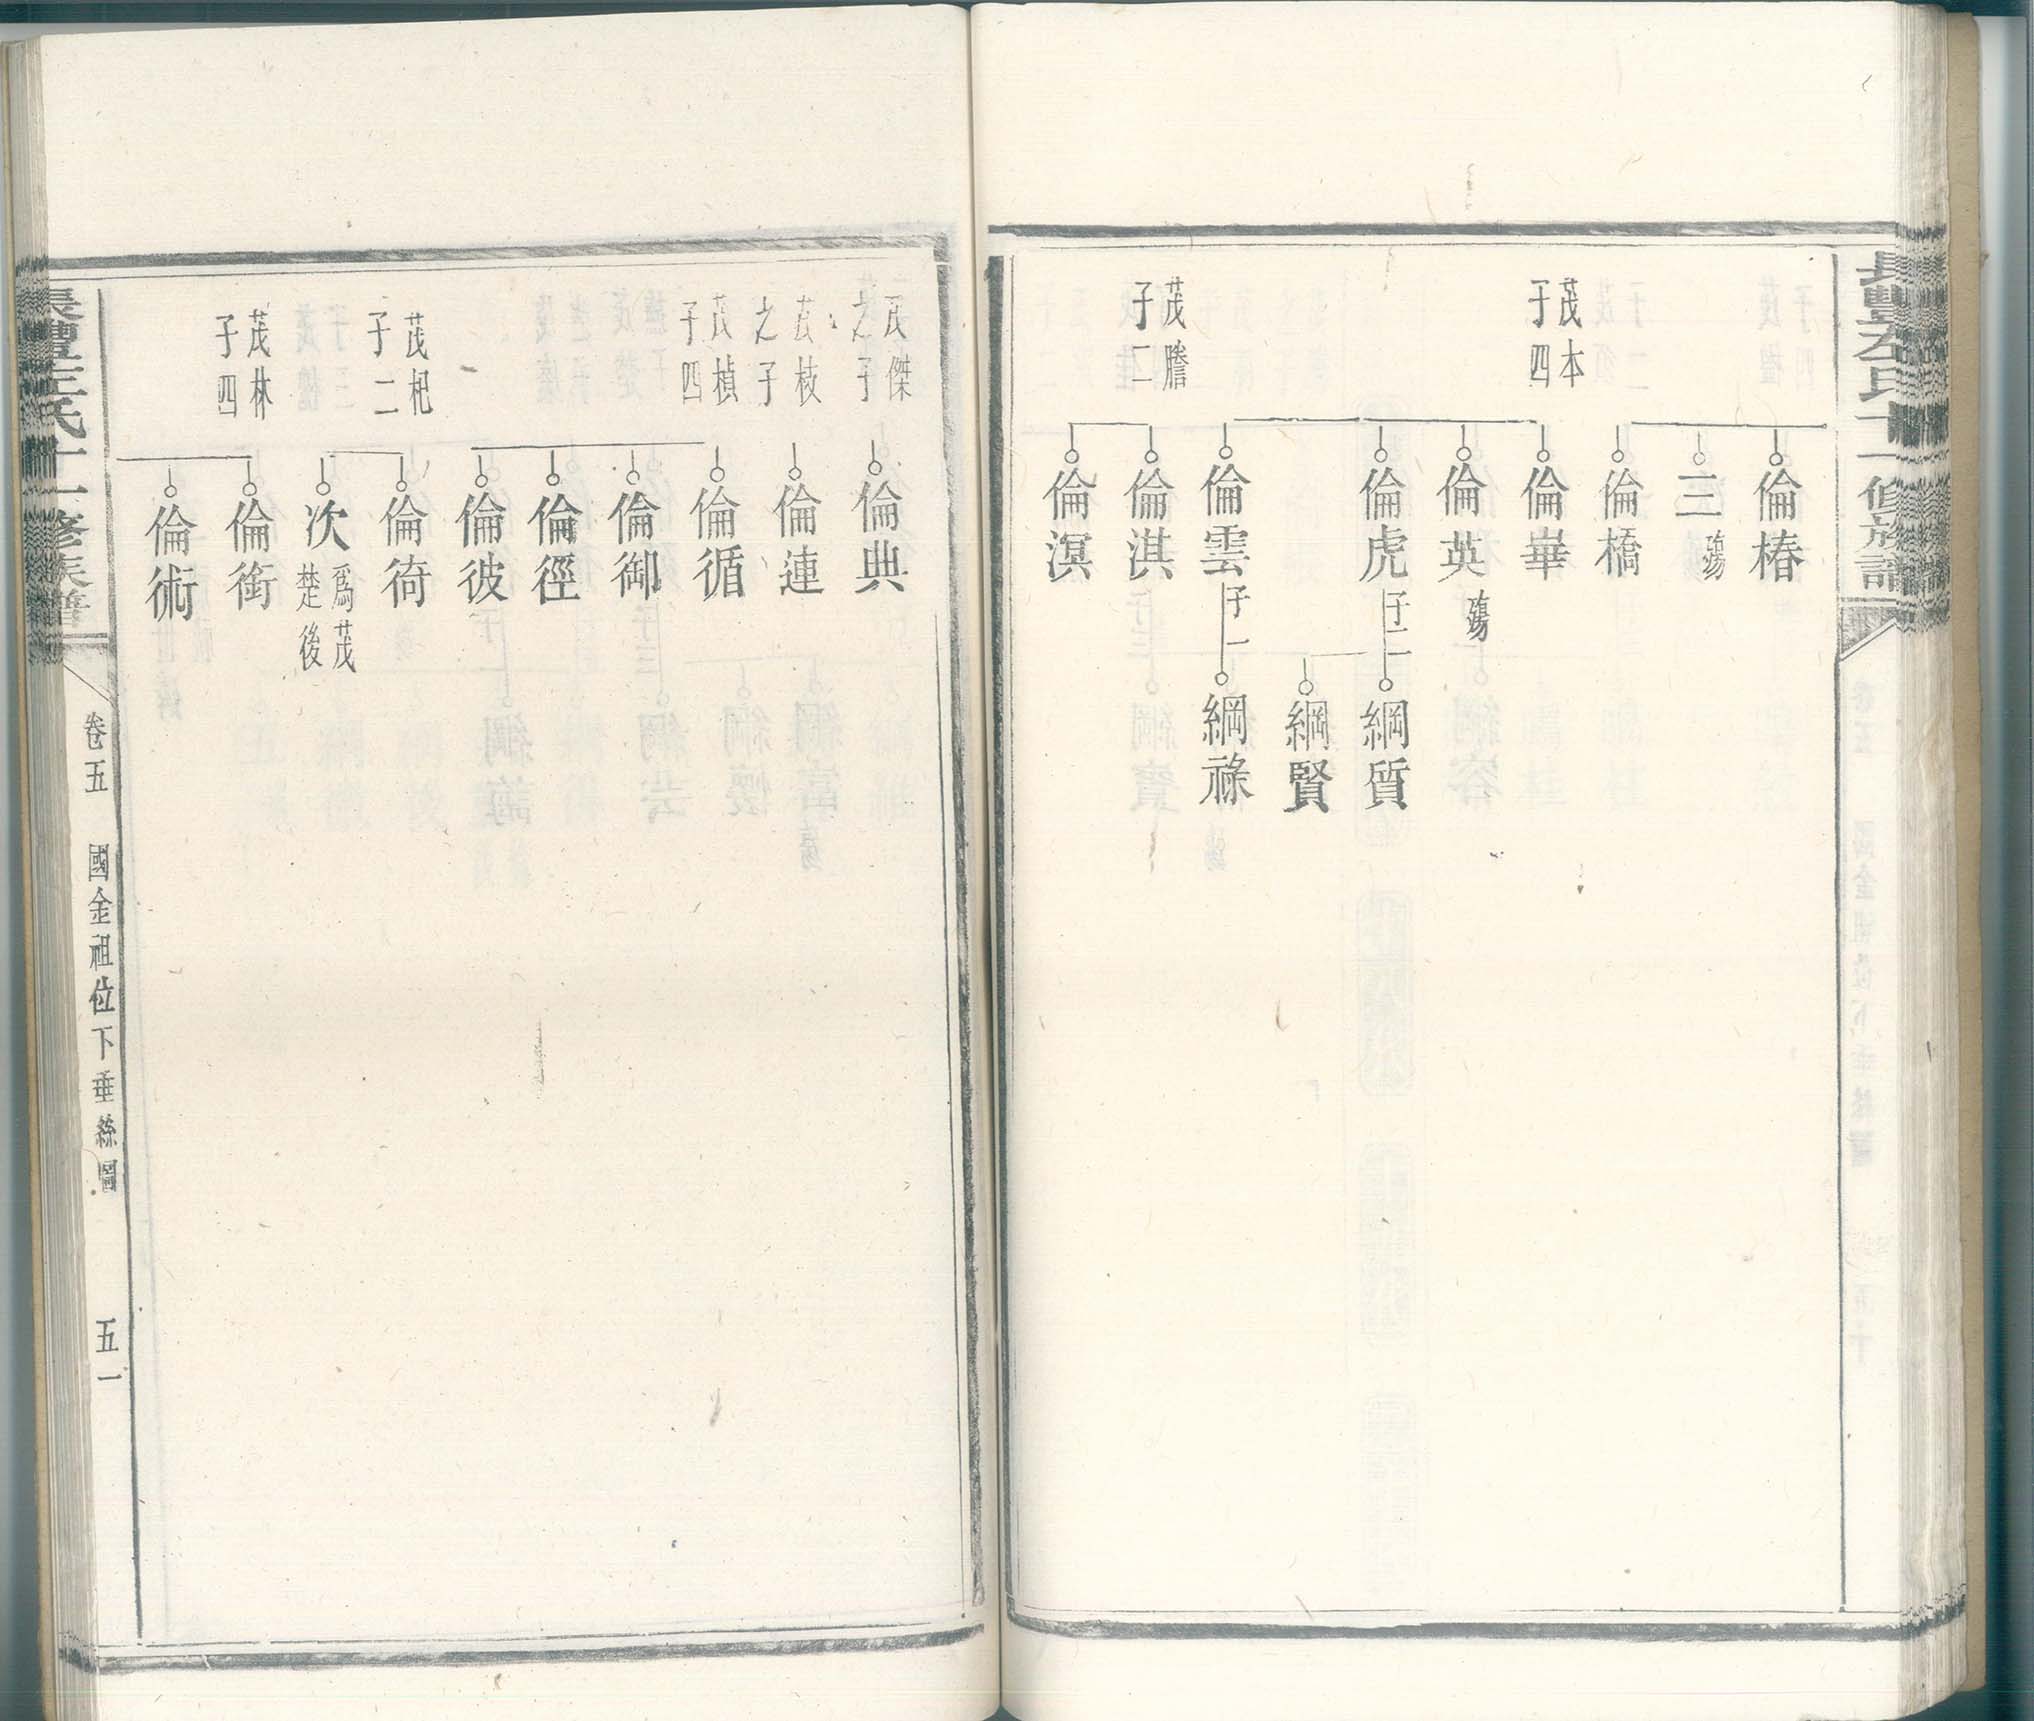 長豐左氏十一修族譜
倫椿
三殤
倫橋
茂本
子四
倫崋
倫英殤
倫虎子二
綱質
綱賢
倫雲子一
綱祿
茂謄
子二
倫淇
倫溟
茂傑
之子
倫典
茂枝
之子
倫連
茂楨
子四
倫循
倫御
倫徑
倫彼
茂杞
子二
倫徛
次爲茂楚後
茂林
子四
倫衝
倫術
長豐左氏十一修族譜
卷五
國金祖位下垂絲圖
五一